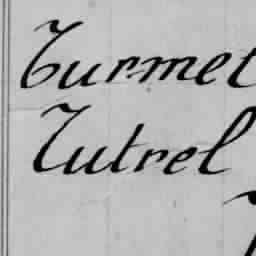 Turmet
Tutrel